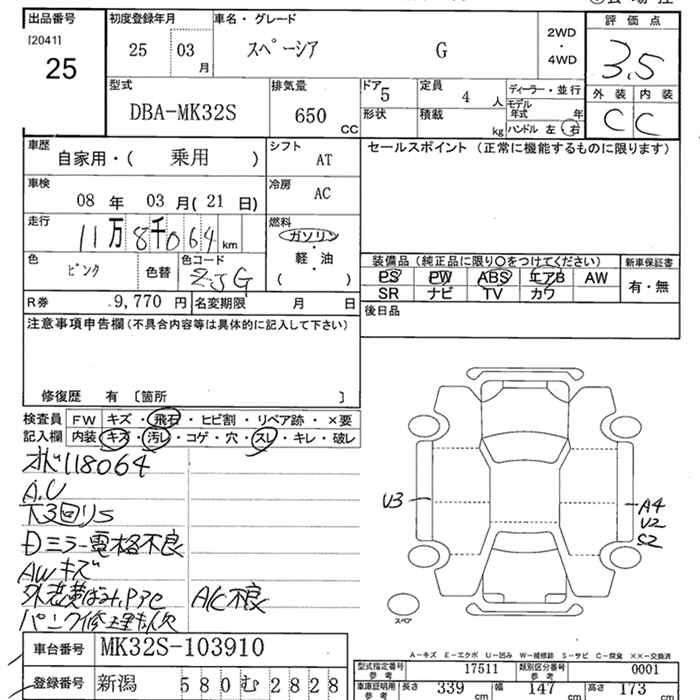 出品番号 初度登録年月 車名・グレード 評価点
[2041]
25 25 03 月 スペーシア G 2WD・4WD 3.5
外装 内装
C C
型式 排気量 ドア 定員 ディーラー・並行
DBA-MK32S 650 CC 5 4 人 モデル年式 年
形状 積載 kg ハンドル 左 右
車歴 シフト セールスポイント (正常に機能するものに限ります)
自家用・( 乗用 ) AT
車検 冷房
08 年 03 月 (21 日) AC
走行 燃料
11万8千064 km ガソリン
軽・油
( )
色 色コード
ピンク 色替 ZJG
装備品 (純正品に限り○をつけてください) 新車保証書
PS PW ABS エアB AW 有・無
SR ナビ TV カワ
R券 9,770 円 名変期限 月 日
後日品
注意事項申告欄(不具合内容等は具体的に記入して下さい)
修復歴 有 〔箇所 〕
検査員 FW キズ・飛石・ヒビ割・リペア跡・×要
記入欄 内装 キズ・汚レ・コゲ・穴・スレ・キレ・破レ
オド118064
A.U
下3回りS
Dミラー電格不良
AWキズ
A/C不良
パンク修理キット欠
U3
A4
U2
S2
スペア
A-キズ E-エクボ U-凹み W-補修跡 S-サビ C-腐食 XX-交換済
車台番号 MK32S-103910
登録番号 新潟 580 む 2828
型式指定番号 参考 17511 類別区分番号 参考 0001
車庫証明用 参考 長さ 339 cm 幅 147 cm 高さ 173 cm